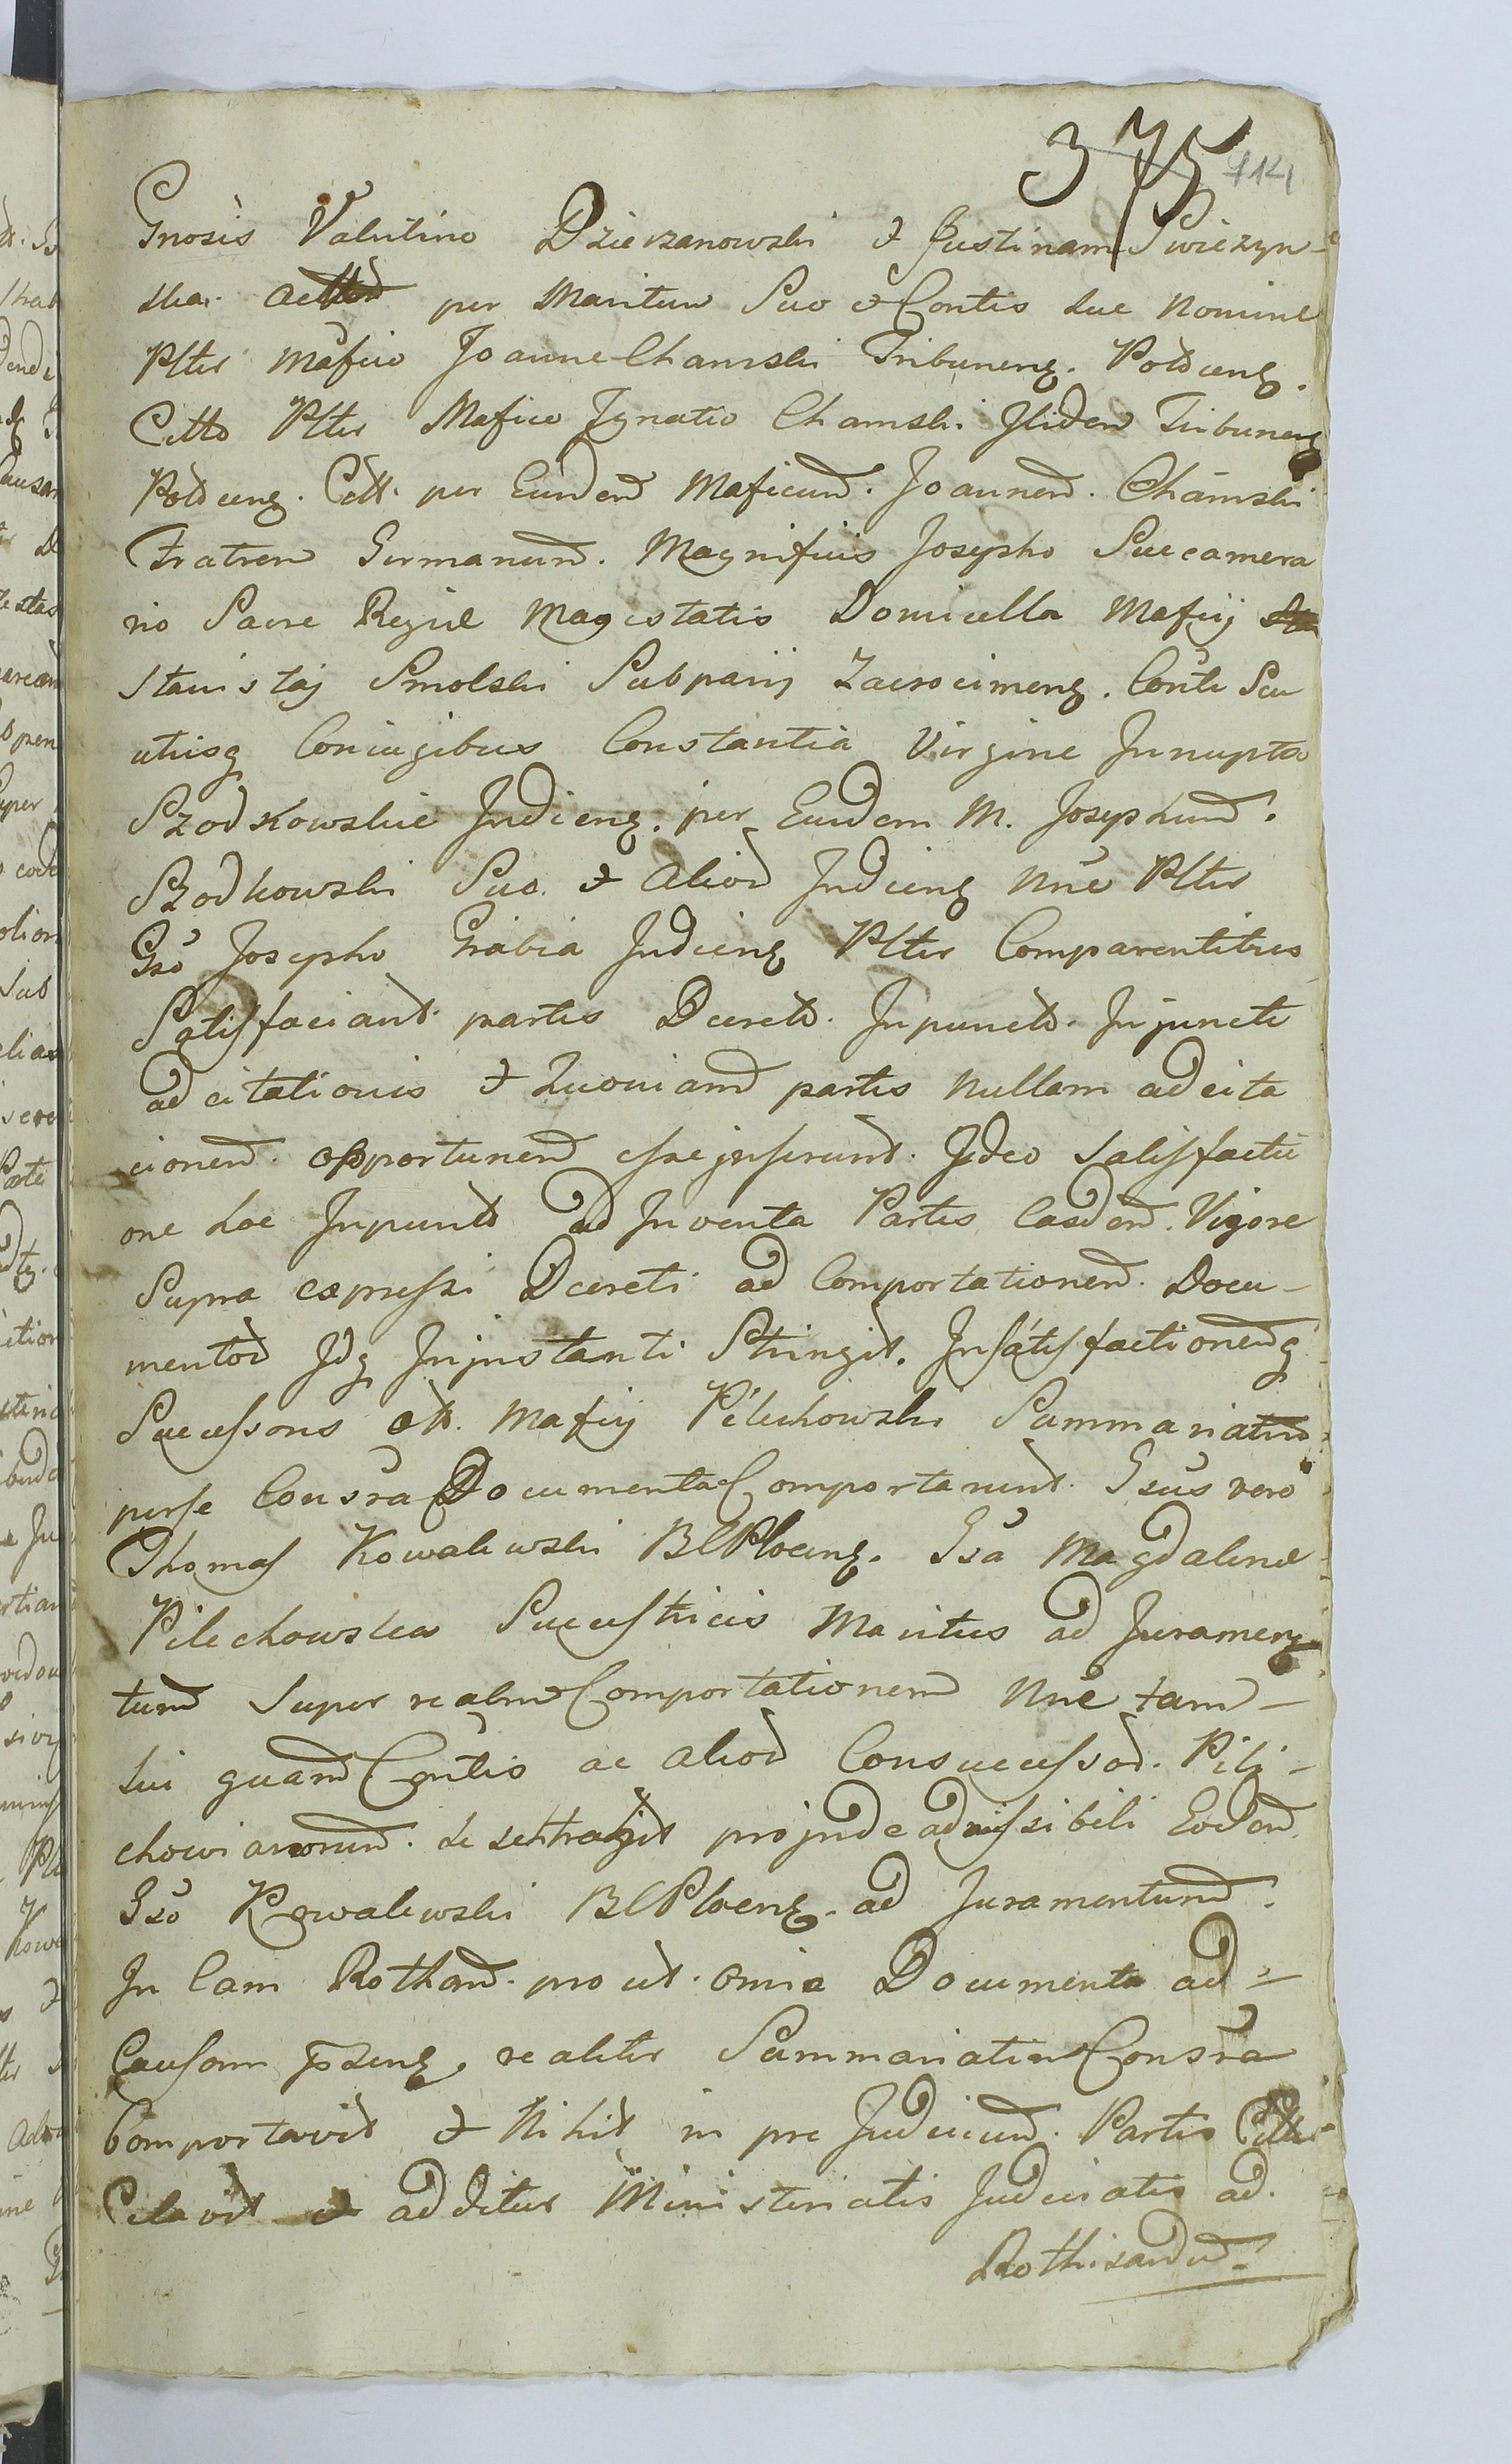 375 714
Gnosis Valntino Dzierzanowski & Justinam Swiezyn-
ska. per Maritum Suo & Contis sue nomine
Plter Mafico Joanne Chamski Tribuneng. Potdceng.
Citto Plter Mafico Ignatio Chamski Itidem Tribuneng
Potdceng. Citt. per Eundem Maficum. Joannem. Chamski
Fratrem Germanum. Magnificis Josepho Succamera
rio Sacre Regie Magestatis Domicella Mafiij
Stanislaj Smolski Subpariij Zacrocimeng. Conte Suu
utrisq Coniugibus Constantia Virgine Innupta
Szodkowskie Judiceng. per Eundem M. Josephum.
Szodkowski Suo. & Aliod Judiceng Nnc Plter
Gso Josepho Grabia Judiceng Plter Comparentibus
Satisfaciant. partes Dcereto. Inpuncto. Injuncte
ad citationis & Quoniam partes Nullam adcita
cionem. opportunem esse inserunt. Ideo Satisfactii
one hoc Inpuncto ad Inventa Partes Easdem. Vigore
Supra expressi Dcereti ad Comportationem. Docu-
mentod Idq Injnstanti Stringit. Insatisfactionemq
Successores Mafiij Pilchowski Summariatim
perse Consra Documenta Comportarunt. Gsus vero
Thomas Kowalewski BCPloceng. Gsa Magdalene
Pilechowska Succestricis Maritus ad Juramen
tum Super realem Comportationem Nnc tam-
sui quam Contis ac aliod Consuccessod. Pili-
chowianorum. se projnde admissibili Eodem
Gso Kowalewski BCPloceng. ad Juramentum.
In Eam Rotham. pro ut. omia Documenta ad=
Causam realiter Summariatim Consra
Comportavit & Nihil in pre Judicium. Partis Citte
Celavit & additus Ministerialis Judicialis ad.
Rothisandum.